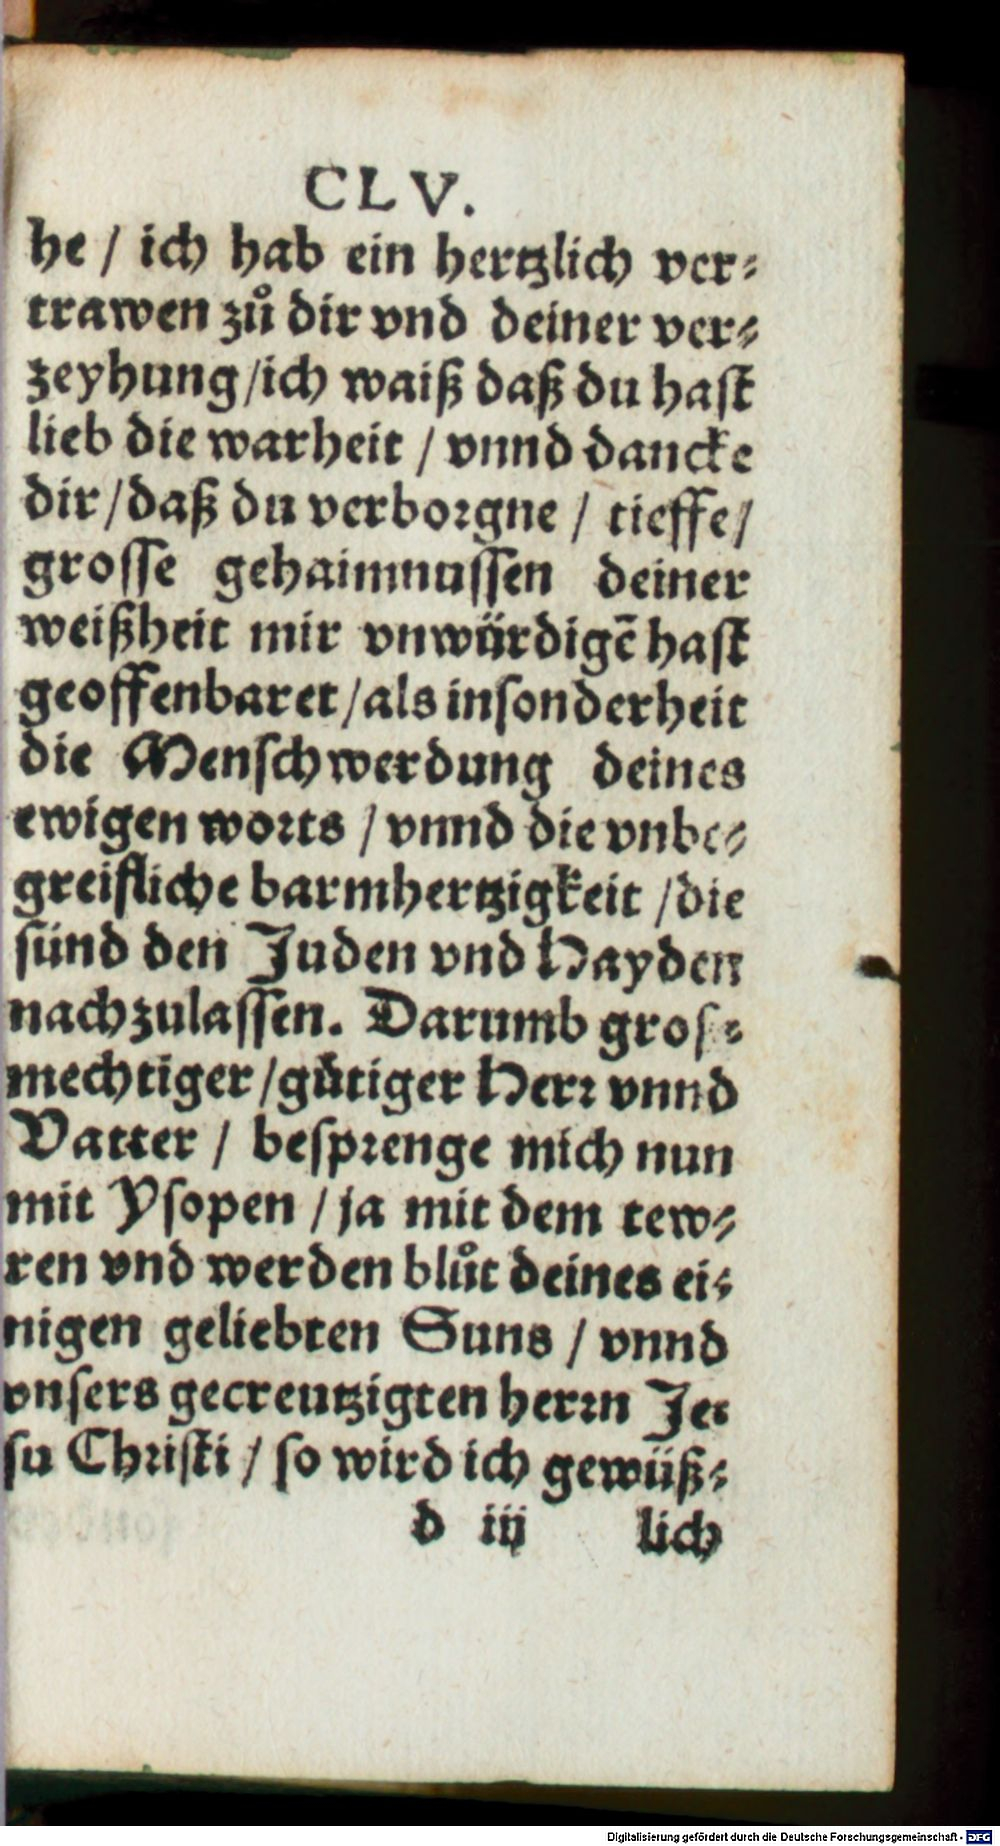 CLV.
he / ich hab ein hertzlich ver⸗
trawen zů dir vnd deiner ver⸗
zeyhung / ich waiß daß du hast
lieb die warheit / vnnd dancke
dir / daß du verborgne / tieffe /
grosse gehaimnussen deiner
weißheit mir vnwürdigẽ hast
geoffenbaret / als insonderheit
die Menschwerdung deines
ewigen worts / vnnd die vnbe⸗
greifliche barmhertzigkeit / die
sünd den Juden vnd Hayden
nachzulassen. Darumb gros⸗
mechtiger / gütiger Herr vnnd
Vatter / besprenge mich nun
mit Ysopen / ja mit dem tew⸗
ren vnd werden blůt deines ei⸗
nigen geliebten Suns / vnnd
vnsers gecreutzigten herrn Je⸗
su Christi / so wird ich gewüß⸗
d iij lich
Digitalisierung gefördert durch die Deutsche Forschungsgemeinschaft - DFG